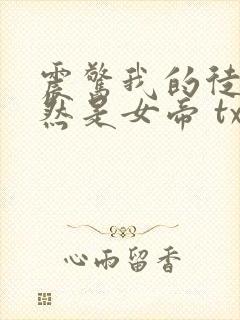 震驚我的徒
然是女帝 tx
心雨留香